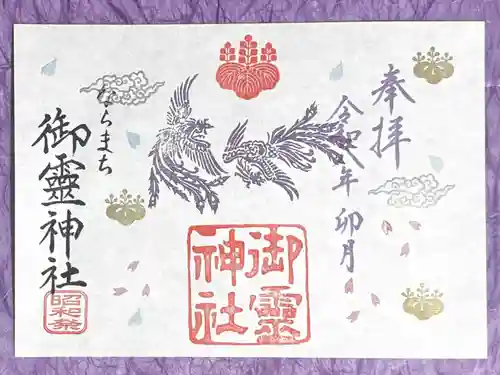 奉拝
令和年 卯月
御靈
神社
ならまち
御靈神社
昭和祭